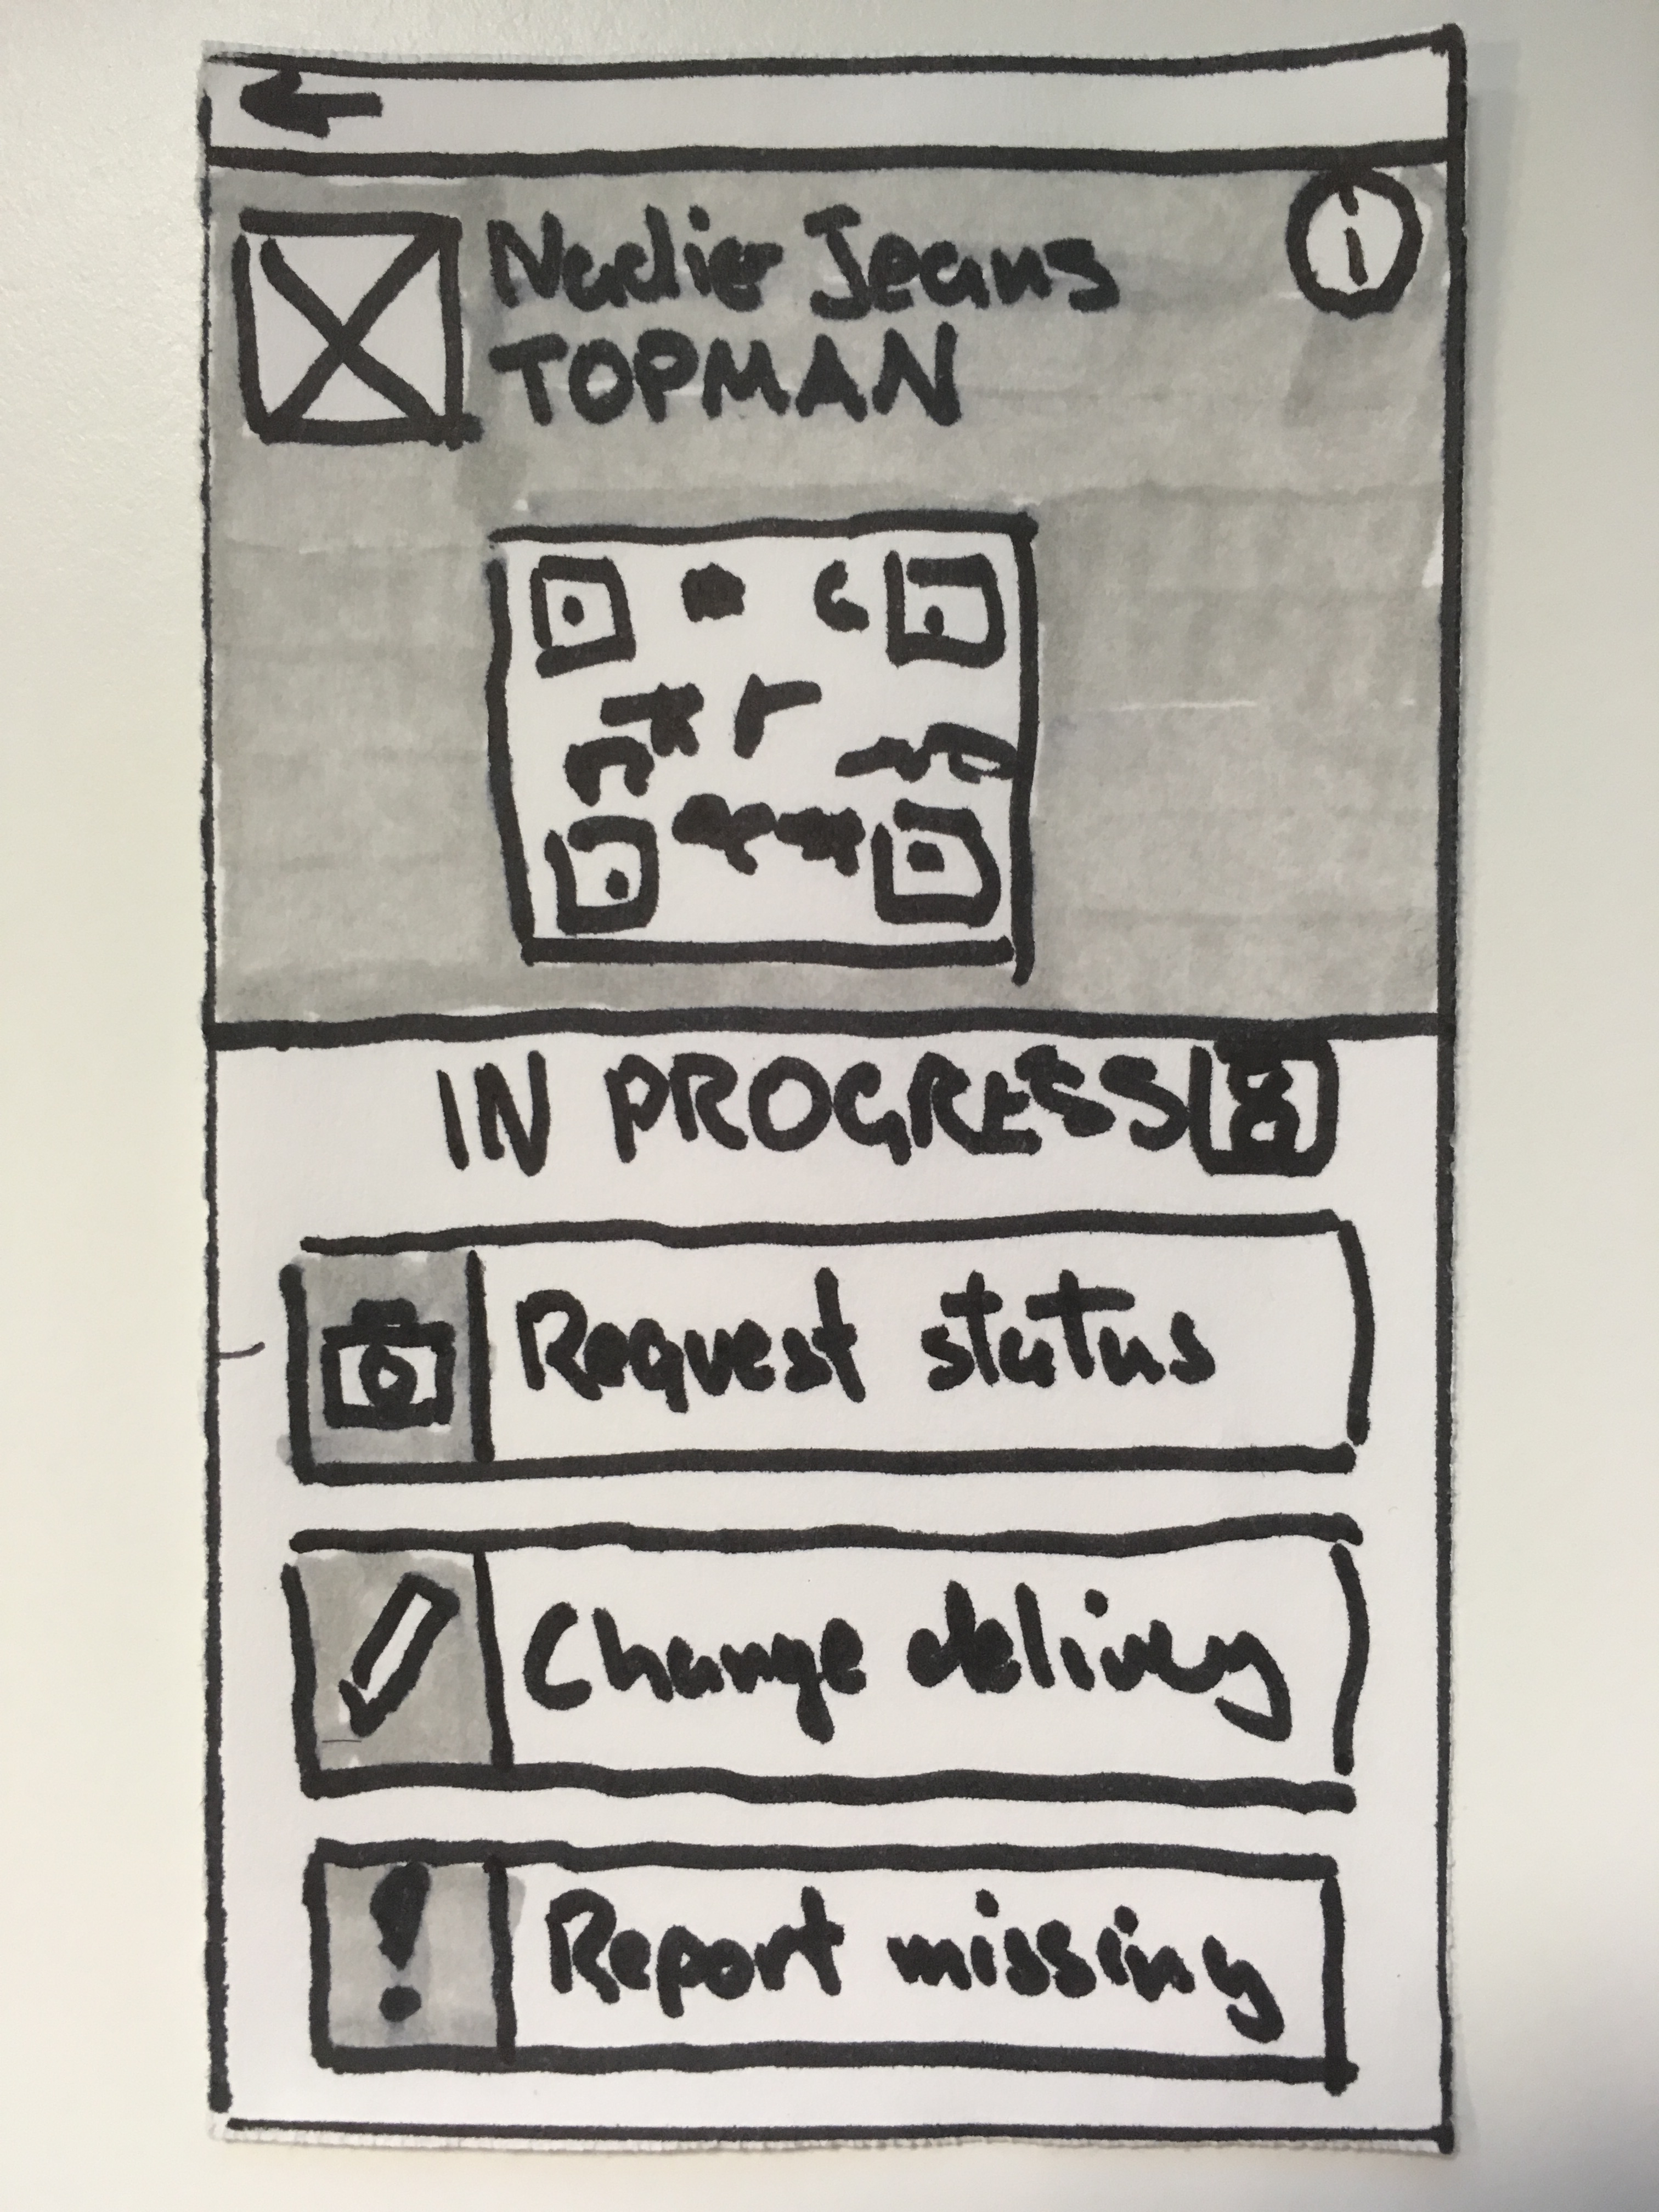 Jeans
TOPMAN
i
IN PROGRESS
Request status
Change delivery
Report missing